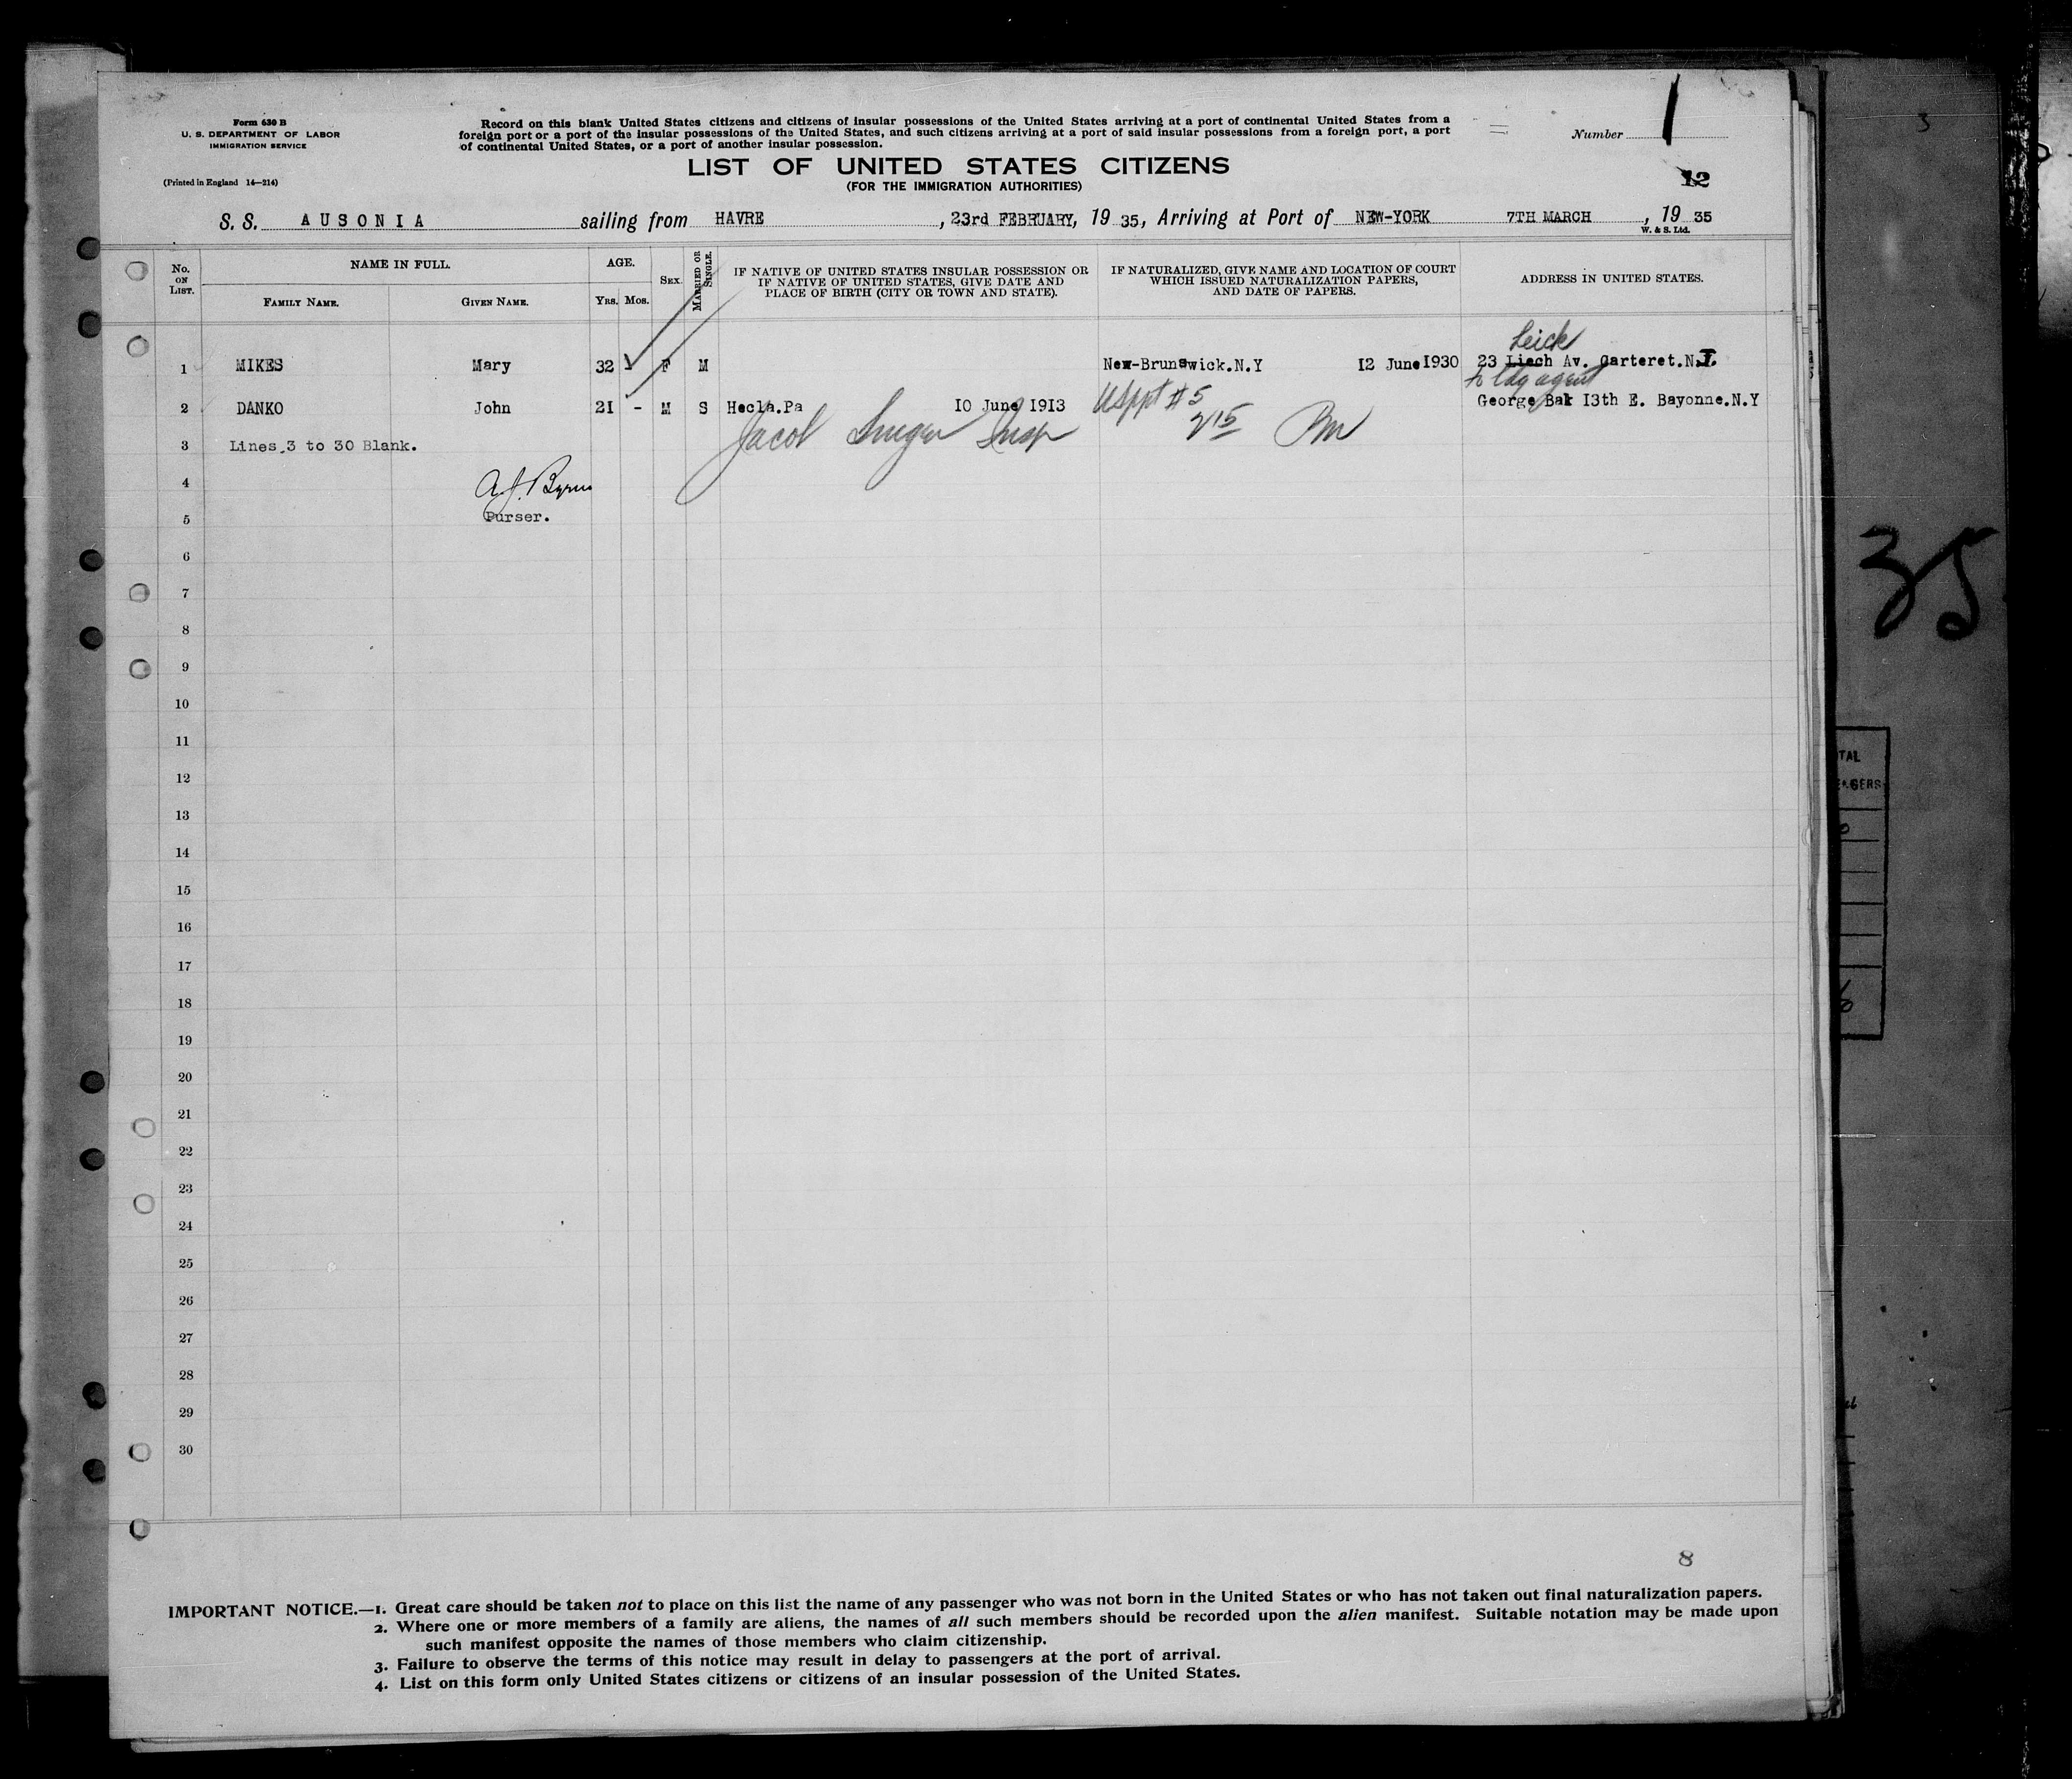 Form 630 B
U. S. DEPARTMENT OF LABOR
IMMIGRATION SERVICE
(Printed in England 14—214)
Record on this blank United States citizens and citizens of insular possessions of the United States arriving at a port of continental United States from a
foreign port or a port of the insular possessions of the United States, and such citizens arriving at a port of said insular possessions from a foreign port, a port
of continental United States, or a port of another insular possession.
Number 1
LIST OF UNITED STATES CITIZENS
(FOR THE IMMIGRATION AUTHORITIES)
12
S. S. AUSONIA sailing from HAVRE, 23rd FEBRUARY, 19 35, Arriving at Port of NEW-YORK 7TH MARCH, 19 35
W. & S. Ltd.
No. ON LIST.
NAME IN FULL.
FAMILY NAME.
GIVEN NAME.
AGE.
YRS. MOS.
SEX.
MARRIED OR SINGLE.
IF NATIVE OF UNITED STATES INSULAR POSSESSION OR
IF NATIVE OF UNITED STATES, GIVE DATE AND
PLACE OF BIRTH (CITY OR TOWN AND STATE).
IF NATURALIZED, GIVE NAME AND LOCATION OF COURT
WHICH ISSUED NATURALIZATION PAPERS,
AND DATE OF PAPERS.
ADDRESS IN UNITED STATES.
Leick
1 MIKES Mary 32 - F M New-Brunswick.N.Y 12 June 1930 23 Liech Av. Carteret.N.J.
to ldg agent
2 DANKO John 21 - M S Hecla.Pa 10 June 1913 George Bak 13th E. Bayonne.N.Y
US ppt # 5
215 Pm
Jacob Insp
3 Lines 3 to 30 Blank.
4 A. J. Byrne
5 Purser.
6
7
8
9
10
11
12
13
14
15
16
17
18
19
20
21
22
23
24
25
26
27
28
29
30
8
IMPORTANT NOTICE.—1. Great care should be taken not to place on this list the name of any passenger who was not born in the United States or who has not taken out final naturalization papers.
2. Where one or more members of a family are aliens, the names of all such members should be recorded upon the alien manifest. Suitable notation may be made upon
such manifest opposite the names of those members who claim citizenship.
3. Failure to observe the terms of this notice may result in delay to passengers at the port of arrival.
4. List on this form only United States citizens or citizens of an insular possession of the United States.
3
35
TAL
GERS